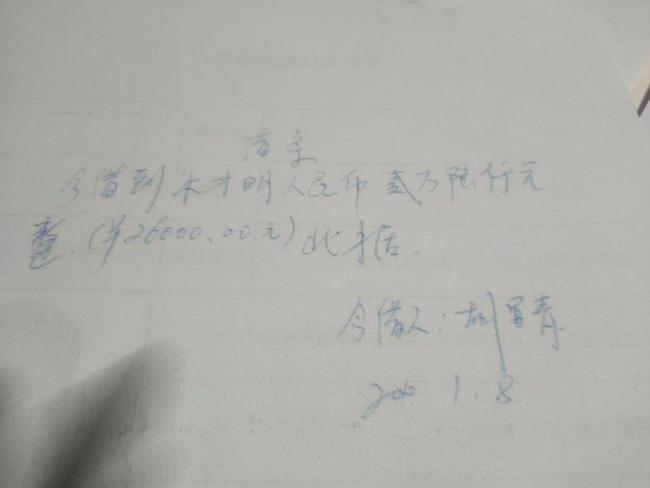 借条
今借到木才明人民币贰万陆仟元
整.(¥26000.00元)此据.
今借人:胡军青
1.8